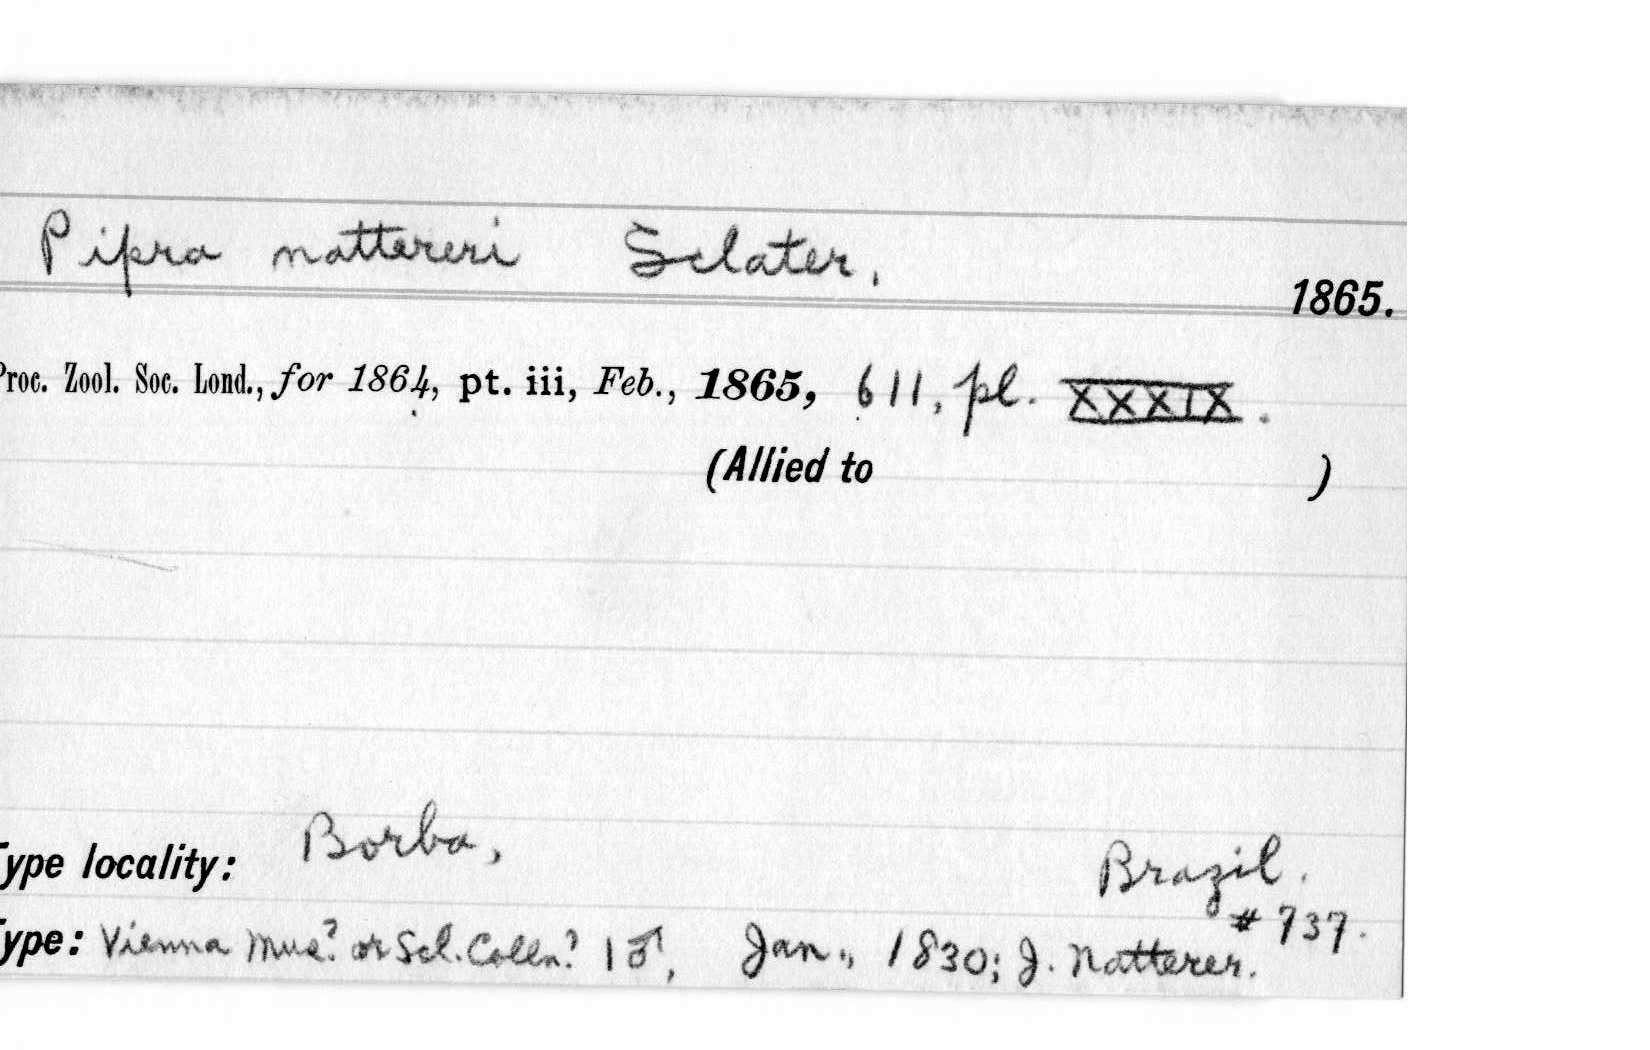 Pipra nattereri Sclater.
1865.
Proc. Zool. Soc. Lond., for 1864, pt. iii, Feb., 1865, 611, pl. XXXIX.
(Allied to )
Type locality: Borba, Brazil.
# 737.
Type: Vienna Mus? or Scl. Colln? 1♂, Jan., 1830; J. Natterer.